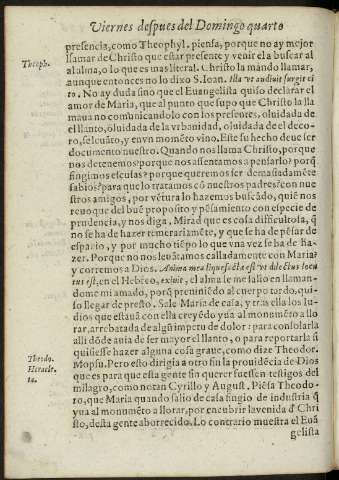 Viernes despues del Domingo quarto
presencia, como Theophyl. piensa, porque no ay mejor
llamar de Christo que estar presente y venir el a buscar al
Theoph.
al alma, o lo que es mas literal. Christo la mando llamar,
aunque entonces no lo dixo S. Ioan. Illa vt audiuit surgit ci
to. No ay duda sino que el Euangelista quiso declarar el
amor de Maria, que al punto que supo que Christo la lla
maua no comunicandolo con los presentes, oluidada de
el llanto, oluidada de la vrbanidad, oluidada de el deco-
ro, se leuãto, y en vn momẽto vino. Este su hecho deue ser
documento nuestro. Quando nos llama Christo, porque
nos detenemos? porque nos assentamos a pensarlo? porq̃
fingimos escusas? porque queremos ser demasiadamẽte
sabios? para que lo tratamos cõ nuestros padres? con nue
stros amigos, por vẽtura lo hazemos buscãdo, quiẽ nos
reuoque del buẽ proposito y pẽsamiento con especie de
prudencia, y nos diga, Mirad que es cosa difficultosa, q̃
no se ha de hazer temerariamẽte, y que se ha de pẽsar de
espacio, y por mucho tiẽpo lo que vna vez se ha de ha-
zer. Porque no nos leuãtamos calladamente con Maria?
y corremos a Dios. Anima mea liquefacta est vt dilectus locu
tus est, en el Hebreo, exiuit, el alma se me salio en llaman-
dome mi amado, porq̃ preuiniẽdo al cuerpo tardo, qui-
so llegar de presto. Sale Maria de casa, y tras ella los Iu-
dios que estauã con ella creyẽdo yua al monumẽto a llo
rar, arrebatada de algũ impetu de dolor: para consolarla
alli dõde auia de ser mayor el llanto, o para reportarla si
quisiesse hazer alguna cosa graue, como dize Theodor.
Theodo.
Heracle-
ta.
Mopsu. Pero esto dirigia a otro fin la prouidẽcia de Dios
que es para que esta gente sin querer fuessen testigos del
milagro, como notan Cyrillo y August. Piẽsa Theodo-
ro, que Maria quando salio de casa fingio de industria q̃
yua al monumẽto a llorar, por encubrir la venida d̃ Chri
sto, desta gente aborrecido. Lo contrario muestra el Euã
gelista